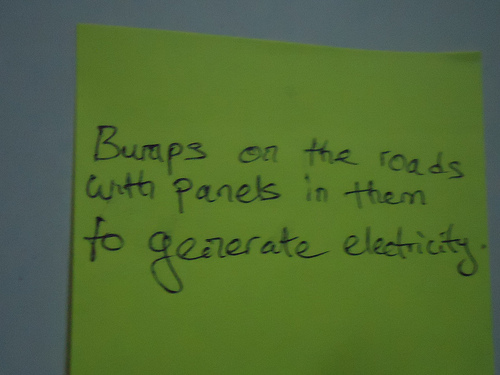 Bumps on the roads
with panels in them
to generate electricity.